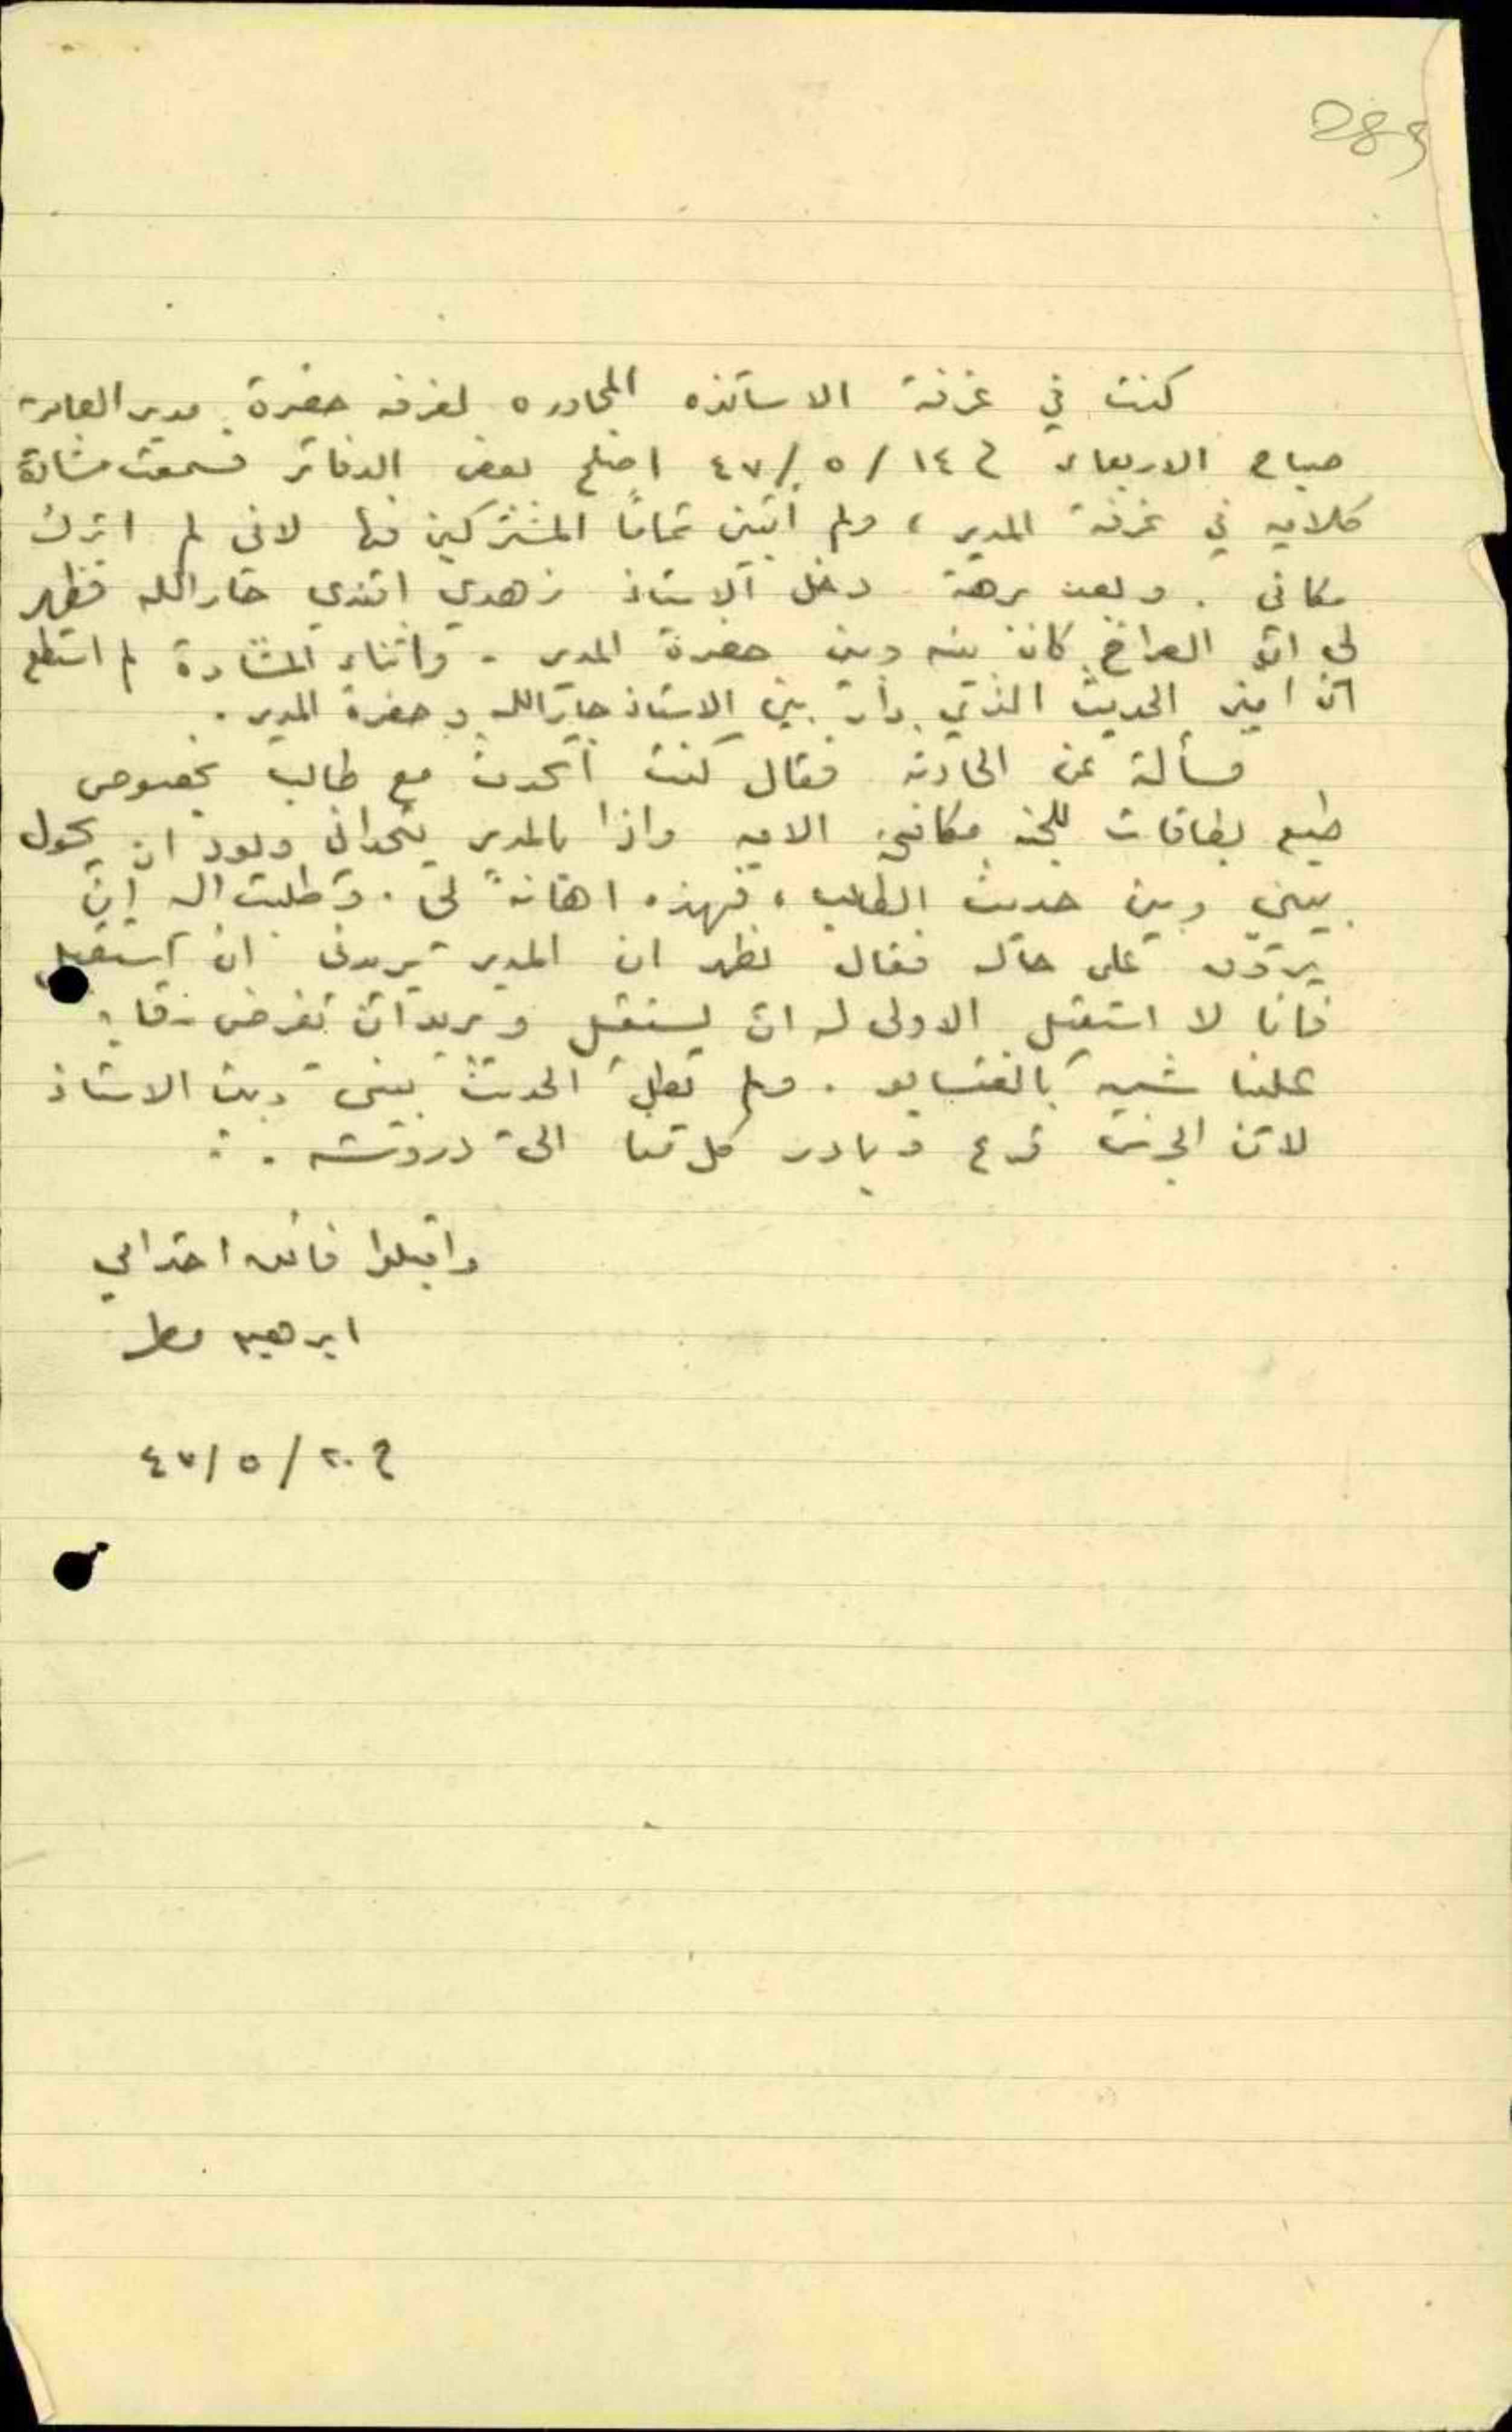 283
كنت في غرفة الاساتذه المجاوره لغرفة حضرة مدير العامرية
صباح الاربعاء في ١٤ / ٥ / ٤٧ اصلح بعض الدفاتر فسمعت مشادة
كلامية في غرفة المدير ، ولم أتبين تماماً المشتركين فيها لانى لم اترك
مكاني . وبعد برهة دخل الاستاذ زهدي افندي جارالله فظهر
لي ان الصراخ كان بينه وبين حضرة المدير . واثناء المشادة لم استطع
ان اميز الحديث الذي دار بين الاستاذ جارالله وحضرة المدير .
فسألته عن الحادثه فقال كنت أتحدث مع طالب بخصوص
طبع بطاقات للجنة مكافحة الامية واذا بالمدير يتحدانى ويود ان يحول
بيني وبين حديث الطالب ، فهذه اهانةً لي . وطلبت اليه ان
يتروى على حاله فقال يظهر ان المدير يريدنى ان استقيل
فانا لا استقيل الاولى له ان يستقيل ويريد ان يفرض رقابة
علينا شبيهة بالغستابو . ولم يطل الحديث بيني وبين الاستاذ
لان الجرس قرع وبادر كل منا الى دروسه .
واقبلوا فائق احترامي
ابرهيم مطر
في ٢٠ / ٥ / ٤٧